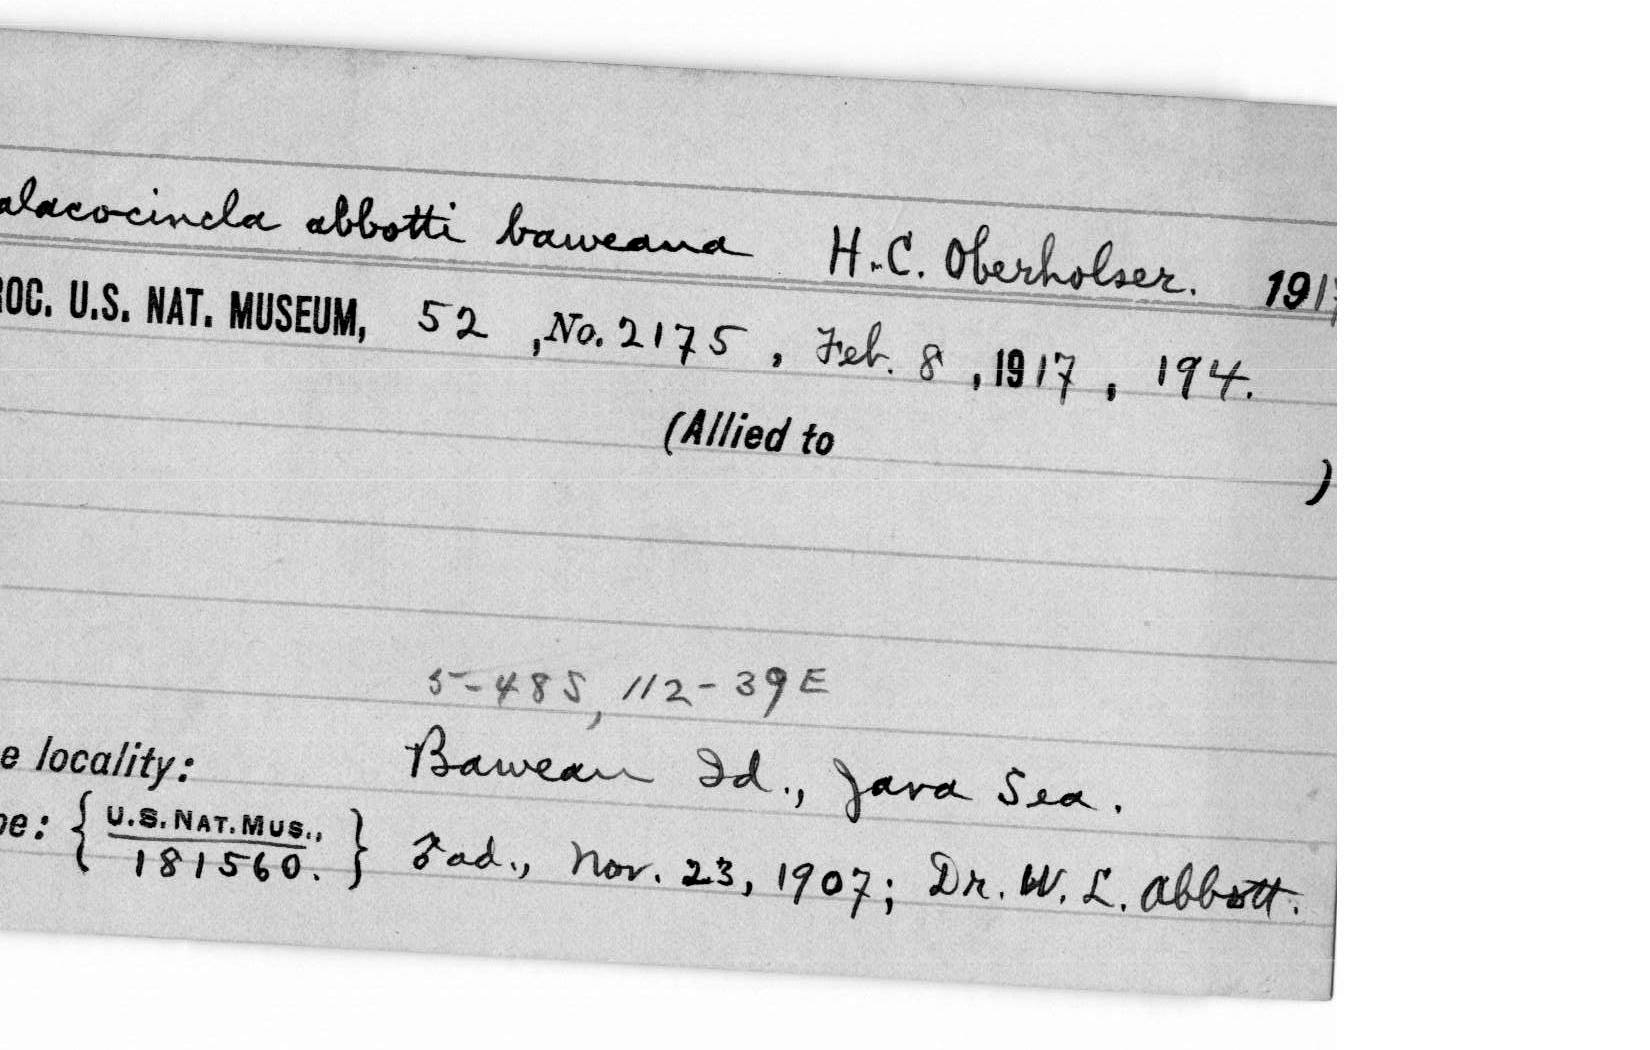 alacocincla abbotti baweana H.C. Oberholser. 1917
ROC. U.S. NAT. MUSEUM, 52, No. 2175, Feb. 8, 1917, 194.
(Allied to )
5-48S, 112-39E
e locality: Bawean Id., Java Sea.
pe: { U.S. NAT. MUS., 181560. } Fad., Nov. 23, 1907; Dr. W. L. Abbott.